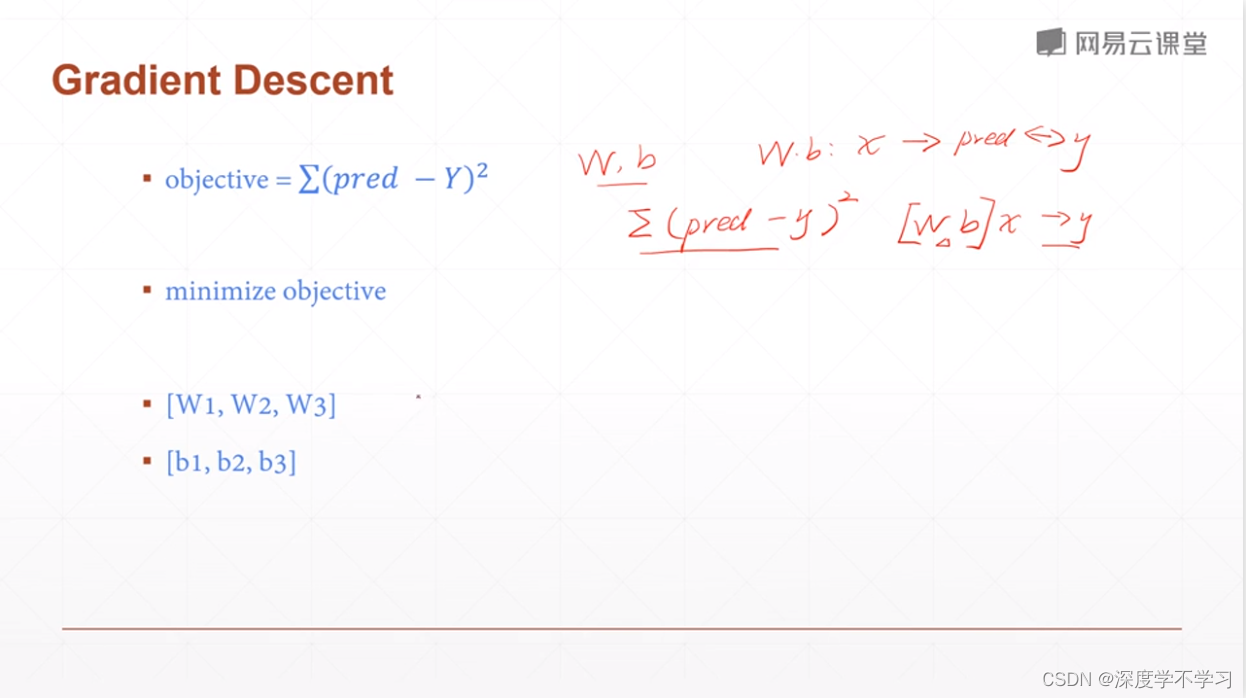 网易云课堂
Gradient Descent
W, b
W.b: x → pred ↔ y
▪ objective = ∑(pred − Y)²
Σ(pred − y)²
[W, b]x → y
▪ minimize objective
▪ [W1, W2, W3]
▪ [b1, b2, b3]
CSDN @深度学不学习